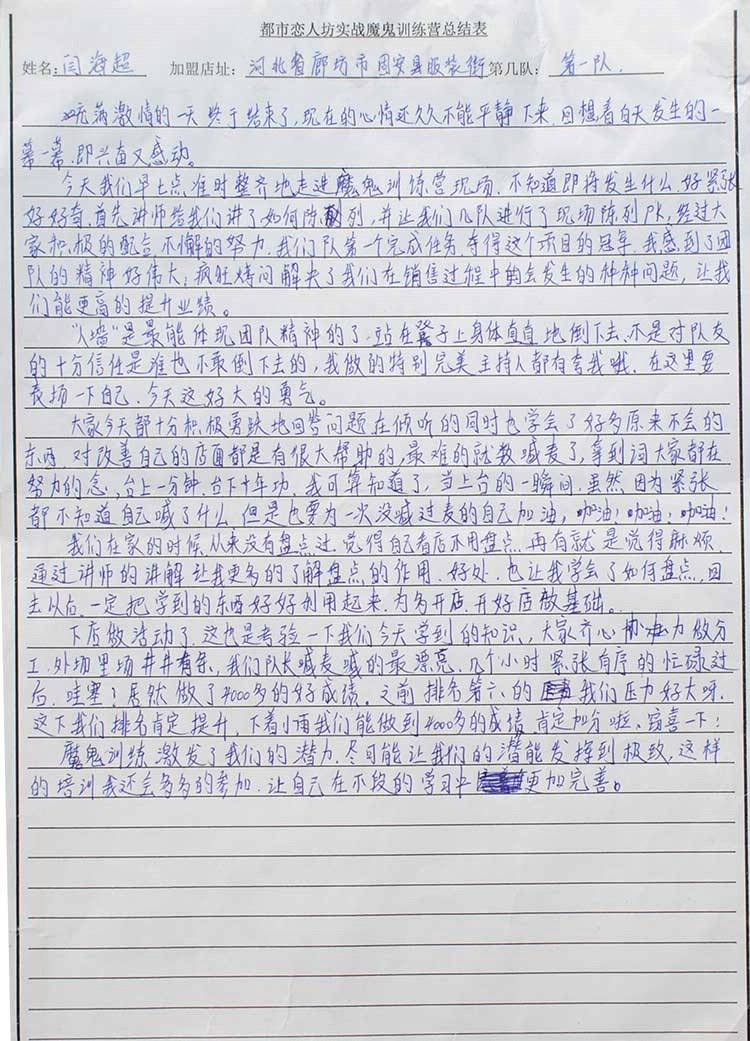 都市恋人坊实战魔鬼训练营总结表
姓名：闫海超 加盟店址：河北省廊坊市固安县服装街 第几队：第一队.
充满激情的一天终于结束了,现在的心情还久久不能平静下来.回想着白天发生的一
幕一幕,即兴奋又感动。
今天我们早七点准时整齐地走进魔鬼训练营现场.不知道即将发生什么.好紧张
好好奇.首先讲师给我们讲了如何陈列,并让我们几队进行了现场陈列PK,经过大
家积极的配合.不懈的努力.我们队第一个完成任务.夺得这个项目的冠军.我感到了团
队的精神好伟大；疯狂烤问解决了我们在销售过程中的会发生的种种问题,让我
们能更高的提升业绩。
"人墙"是最能体现团队精神的了.站在凳子上身体直直地倒下去.不是对队友
的十分信任是谁也不敢倒下去的,我做的特别完美主持人都有夸我哦.在这里要
表扬一下自己.今天这好大的勇气。
大家今天都十分积极勇跃地回答问题在倾听的同时也学会了好多原来不会的
东西.对改善自己的店面都是有很大帮助的,最难的就数喊麦了,拿到词大家都在
努力的念,台上一分钟.台下十年功.我可算知道了.当上台的一瞬间.虽然因为紧张
都不知道自己喊了什么.但是也要为一次没喊过麦的自己加油,咖油！咖油！咖油！
我们在家的时候.从来没有盘点过.觉得自己看店不用盘点.再有就是觉得麻烦.
通过讲师的讲解让我更多的了解盘点的作用.好处.也让我学会了如何盘点.回
去以后.一定把学到的东西好好利用起来.为多开店.开好店做基础。
下店做活动了.这也是考验一下我们今天学到的知识.大家齐心协力做分
工.外场里场井井有条.我们队长喊麦喊的最漂亮.几个小时紧张有序的忙碌过
后.哇塞！居然做了4000多的好成绩.之前排名第六的我们压力好大呀.
这下我们排名肯定提升.下着小雨我们能做到4000多的成绩.肯定加分啦.窃喜一下！
魔鬼训练激发了我们的潜力.尽可能让我们的潜能发挥到极致.这样
的培训我还会多多的参加.让自己在不段的学习中更加完善。